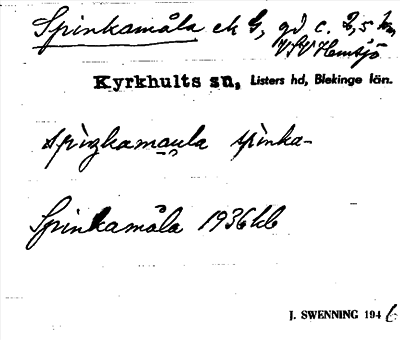 Spinkamåla ek G, gd c. 2,5 km
VSV Hemsjö
Kyrkhults sn, Listers hd, Blekinge län.
spiŋkamaula spinka-
Spinkamåla 1936 kb
J. SWENNING 1946